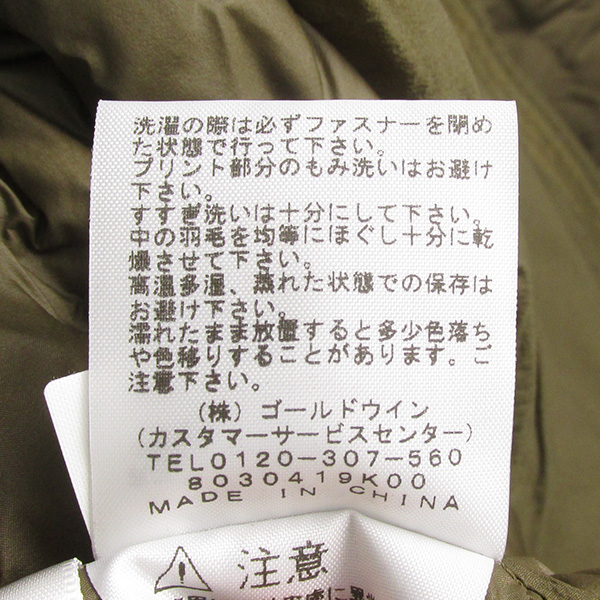 洗濯の際は必ずファスナーを閉め
た状態で行って下さい。
プリント部分のもみ洗いはお避け
下さい。
すすぎ洗いは十分にして下さい。
中の羽毛を均等にほぐし十分に乾
燥させて下さい。
高温多湿、蒸れた状態での保存は
お避け下さい。
濡れたまま放置すると多少色落ち
や色移りすることがあります。ご
注意下さい。
(株)ゴールドウイン
(カスタマーサービスセンター)
TEL0120-307-560
8030419K00
MADE IN CHINA
注意